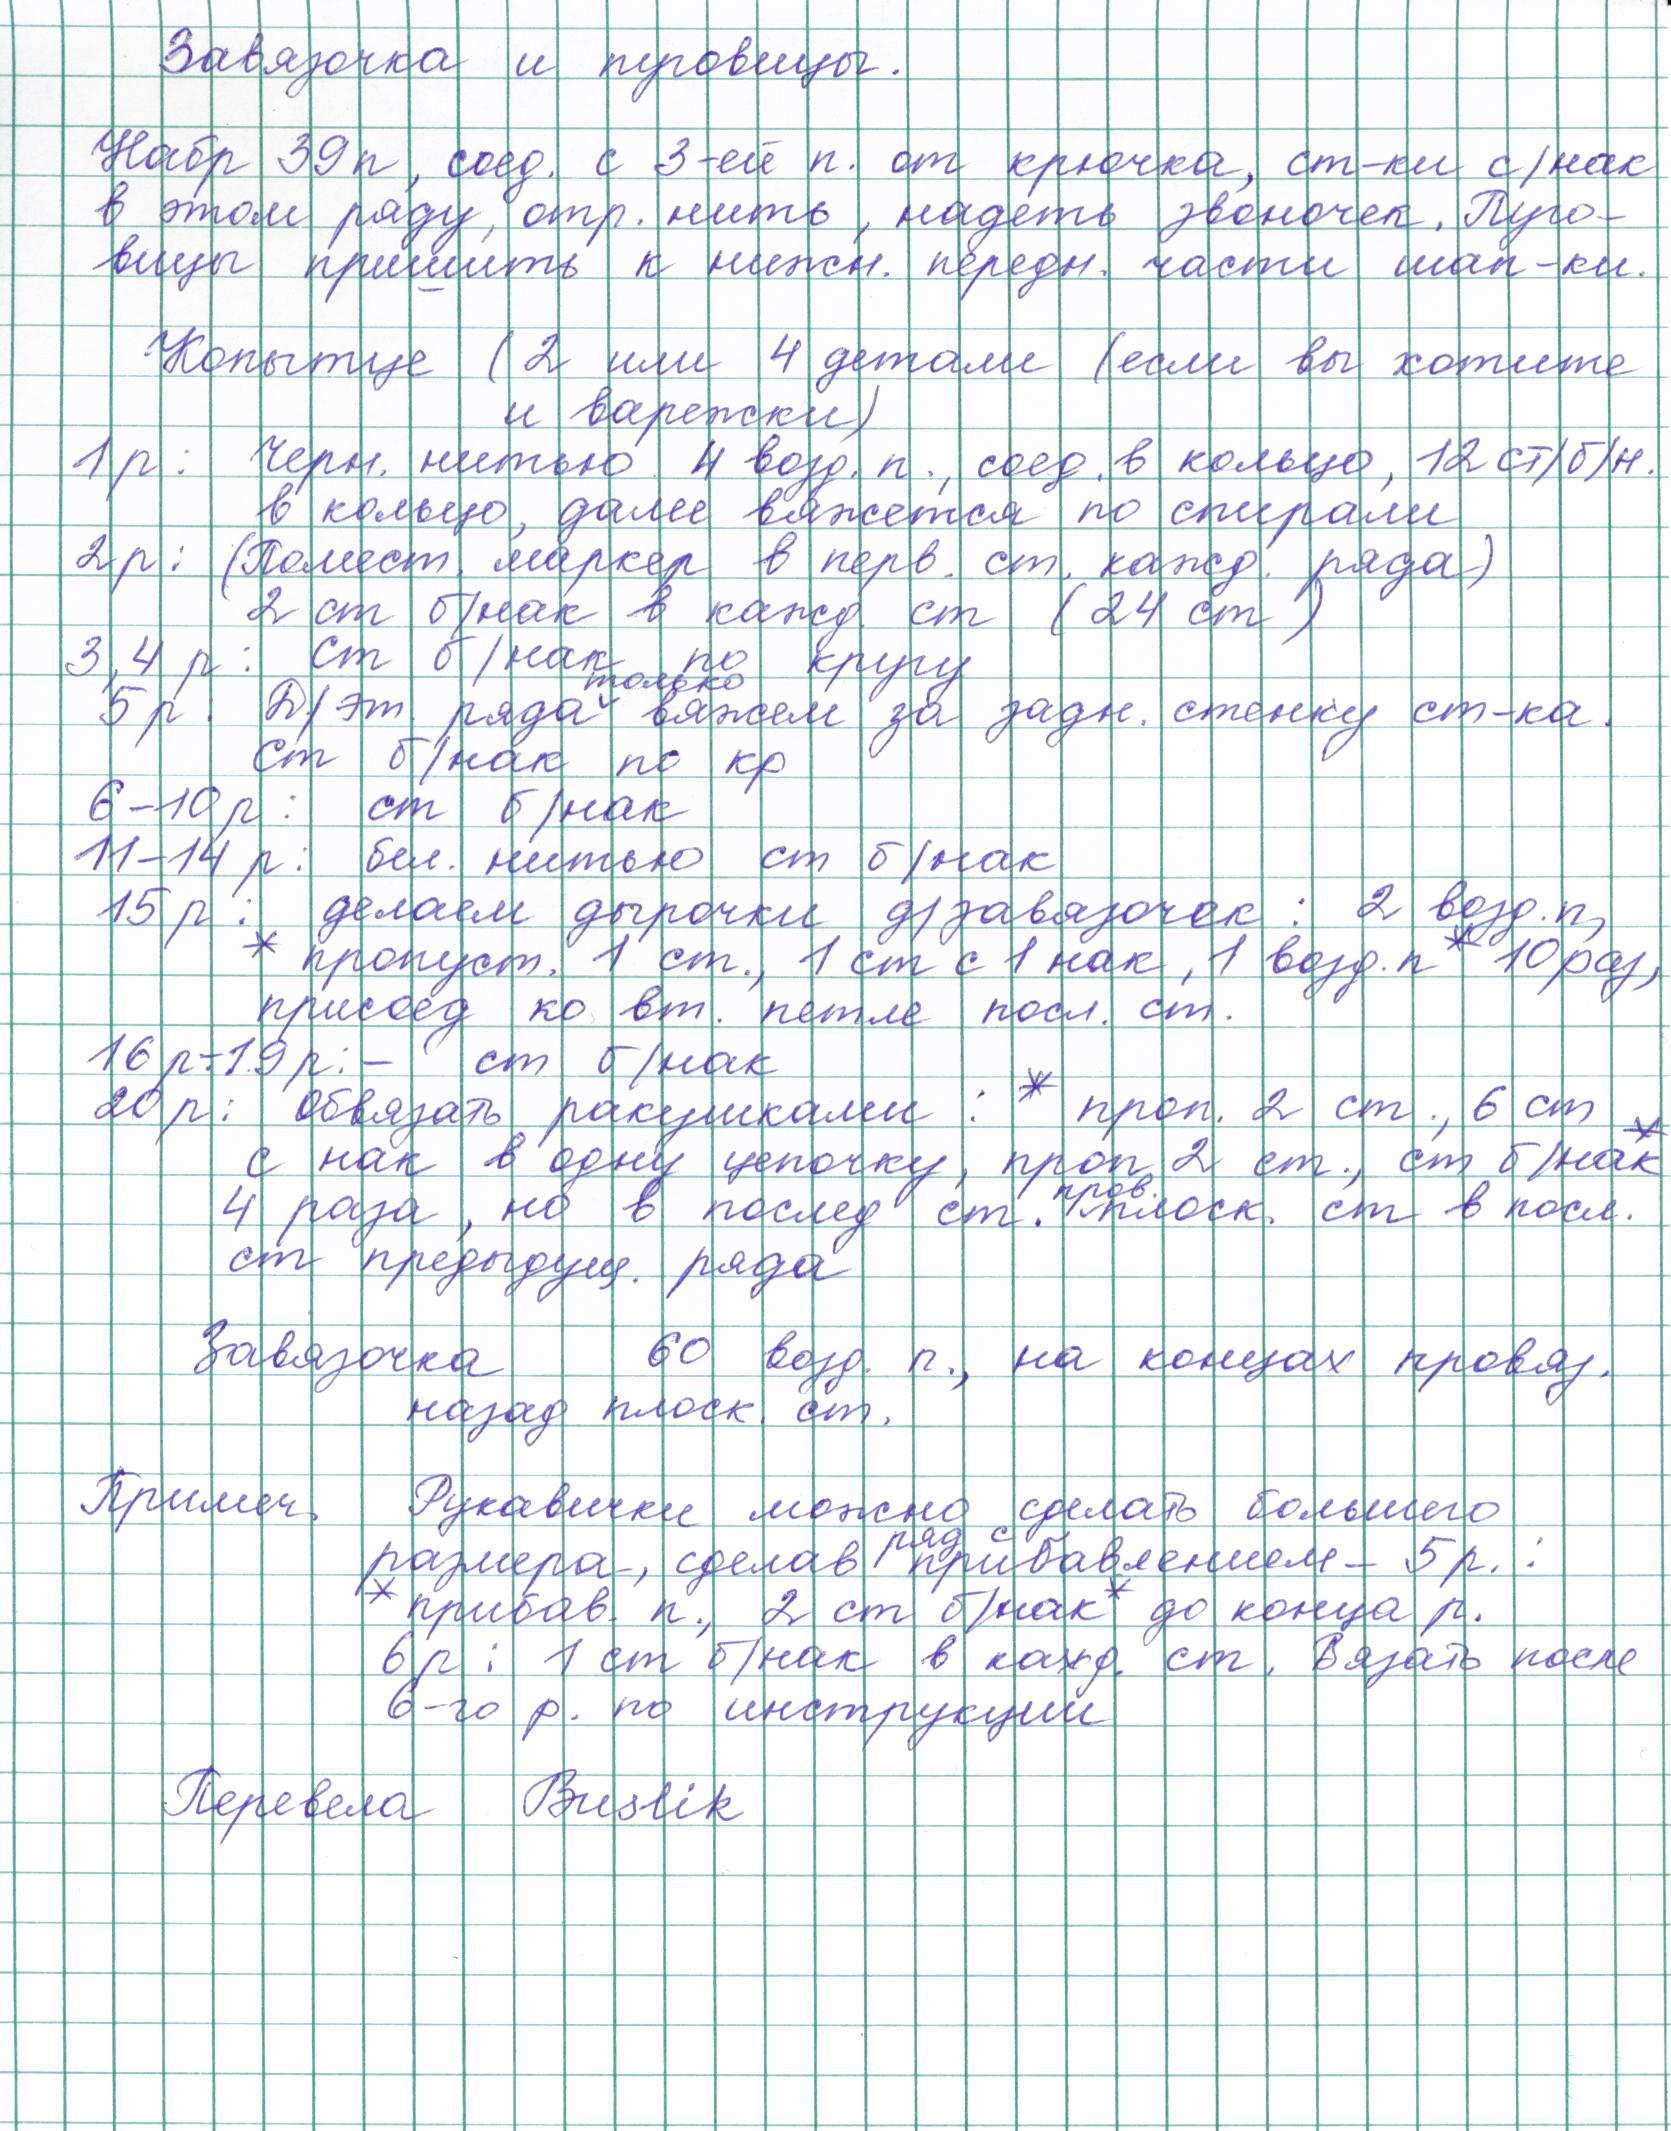 Завязочка и пуговицы.
Набр 39п, соед. с 3-ей п. от крючка, ст-ки с/нак
в этом ряду, отр. нить, надеть звоночек. Пуго-
вицы пришить к нижн. передн. части шап-ки.
Копытце (2 или 4 детали (если вы хотите
и варежки)
1р: Черн. нитью 4 возд. п., соед. в кольцо, 12 ст/б/н.
в кольцо, далее вяжется по спирали
2р: (Помест. маркер в перв. ст. кажд. ряда)
2 ст б/нак в кажд. ст (24 ст)
3,4 р: ст б/нак по кругу
5р: Д/эт. ряда только вяжем за задн. стенку ст-ка.
ст б/нак по кр
6-10р: ст б/нак
11-14 р: бел. нитью ст б/нак
15р: делаем дырочки д/завязочек: 2 возд. п,
* пропуст. 1 ст., 1 ст с 1 нак, 1 возд. п * 10 раз,
присоед ко вт. петле посл. ст.
16р-19р:- ст б/нак
20р: Обвязать ракушками: * проп. 2 ст., 6 ст
с нак в одну цепочку, проп 2 ст., ст б/нак *
4 раза, но в послед ст. пров. плоск. ст в посл.
ст предыдущ. ряда
Завязочка 60 возд. п., на концах провяз.
назад плоск. ст.
Примеч. Рукавички можно сделать большего
размера, сделав ряд с прибавлением - 5р.:
* прибав. п., 2 ст б/нак * до конца р.
6р: 1 ст б/нак в кажд. ст. Вязать после
6-го р. по инструкции
Перевела Buslik